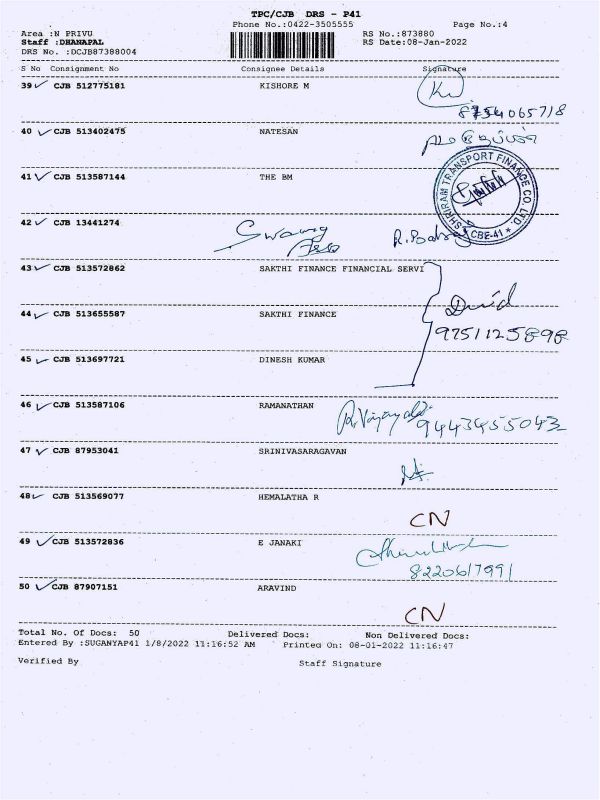 TPC/CJB DRS - P41
Phone No.:0422-3505555 Page No.:4
Area :N PRIVU RS No.:873880
Staff :DHANAPAL RS Date:08-Jan-2022
DRS No. :DCJB87388004
S No Consignment No Consignee Details Signature
39 CJB 512775181 KISHORE M
8754065718
40 CJB 513402475 NATESAN
41 CJB 513587144 THE BM
SHRIRAM TRANSPORT FINANCE CO. LTD. * CBE-41 *
42 CJB 13441274
43 CJB 513572862 SAKTHI FINANCE FINANCIAL SERVI
44 CJB 513655587 SAKTHI FINANCE
9751125898
45 CJB 513697721 DINESH KUMAR
46 CJB 513587106 RAMANATHAN
9443455042
47 CJB 87953041 SRINIVASARAGAVAN
48 CJB 513569077 HEMALATHA R
CN
49 CJB 513572836 E JANAKI
8220617991
50 CJB 87907151 ARAVIND
CN
Total No. Of Docs: 50 Delivered Docs: Non Delivered Docs:
Entered By :SUGANYAP41 1/8/2022 11:16:52 AM Printed On: 08-01-2022 11:16:47
Verified By Staff Signature